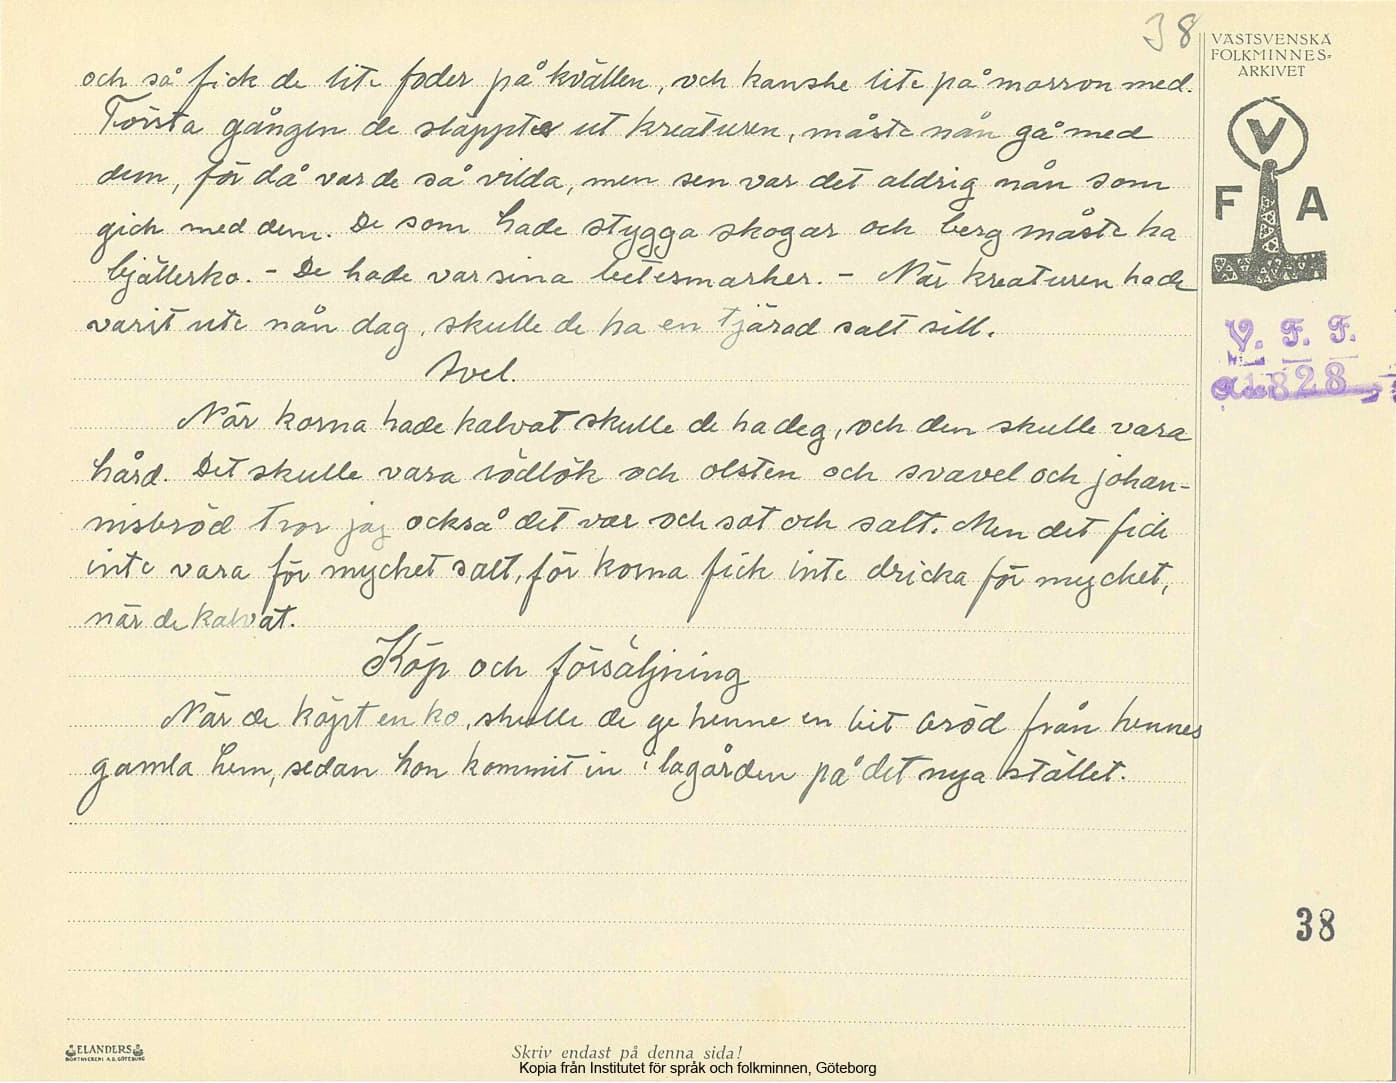 38
VÄSTSVENSKA
FOLKMINNES-
ARKIVET
V
F A
V. F. F.
1828
och så fick de lite foder på kvällen, och kanske lite på morron med.
Första gången de släpptes ut kreaturen, måste nån gå med
dem, för då var de så vilda, men sen var det aldrig nån som
gick med dem. De som hade stygga skogar och berg måste ha
bjällerko. - De hade var sina betesmarker. - När kreaturen hade
varit ute nån dag, skulle de ha en tjärad salt sill.
Avel.
När korna hade kalvat skulle de ha deg, och den skulle vara
hård. Det skulle vara rödlök och olsten och svavel och johan-
nisbröd tror jag också det var och sot och salt. Men det fick
inte vara för mycket salt, för korna fick inte dricka för mycket,
när de kalvat.
Köp och försäljning
När de köpt en ko, skulle de ge henne en bit bröd från hennes
gamla hem, sedan hon kommit in i lagården på det nya stället.
38
ELANDERS
BOKTRYCKERI A.B. GÖTEBORG
Skriv endast på denna sida!
Kopia från Institutet för språk och folkminnen, Göteborg